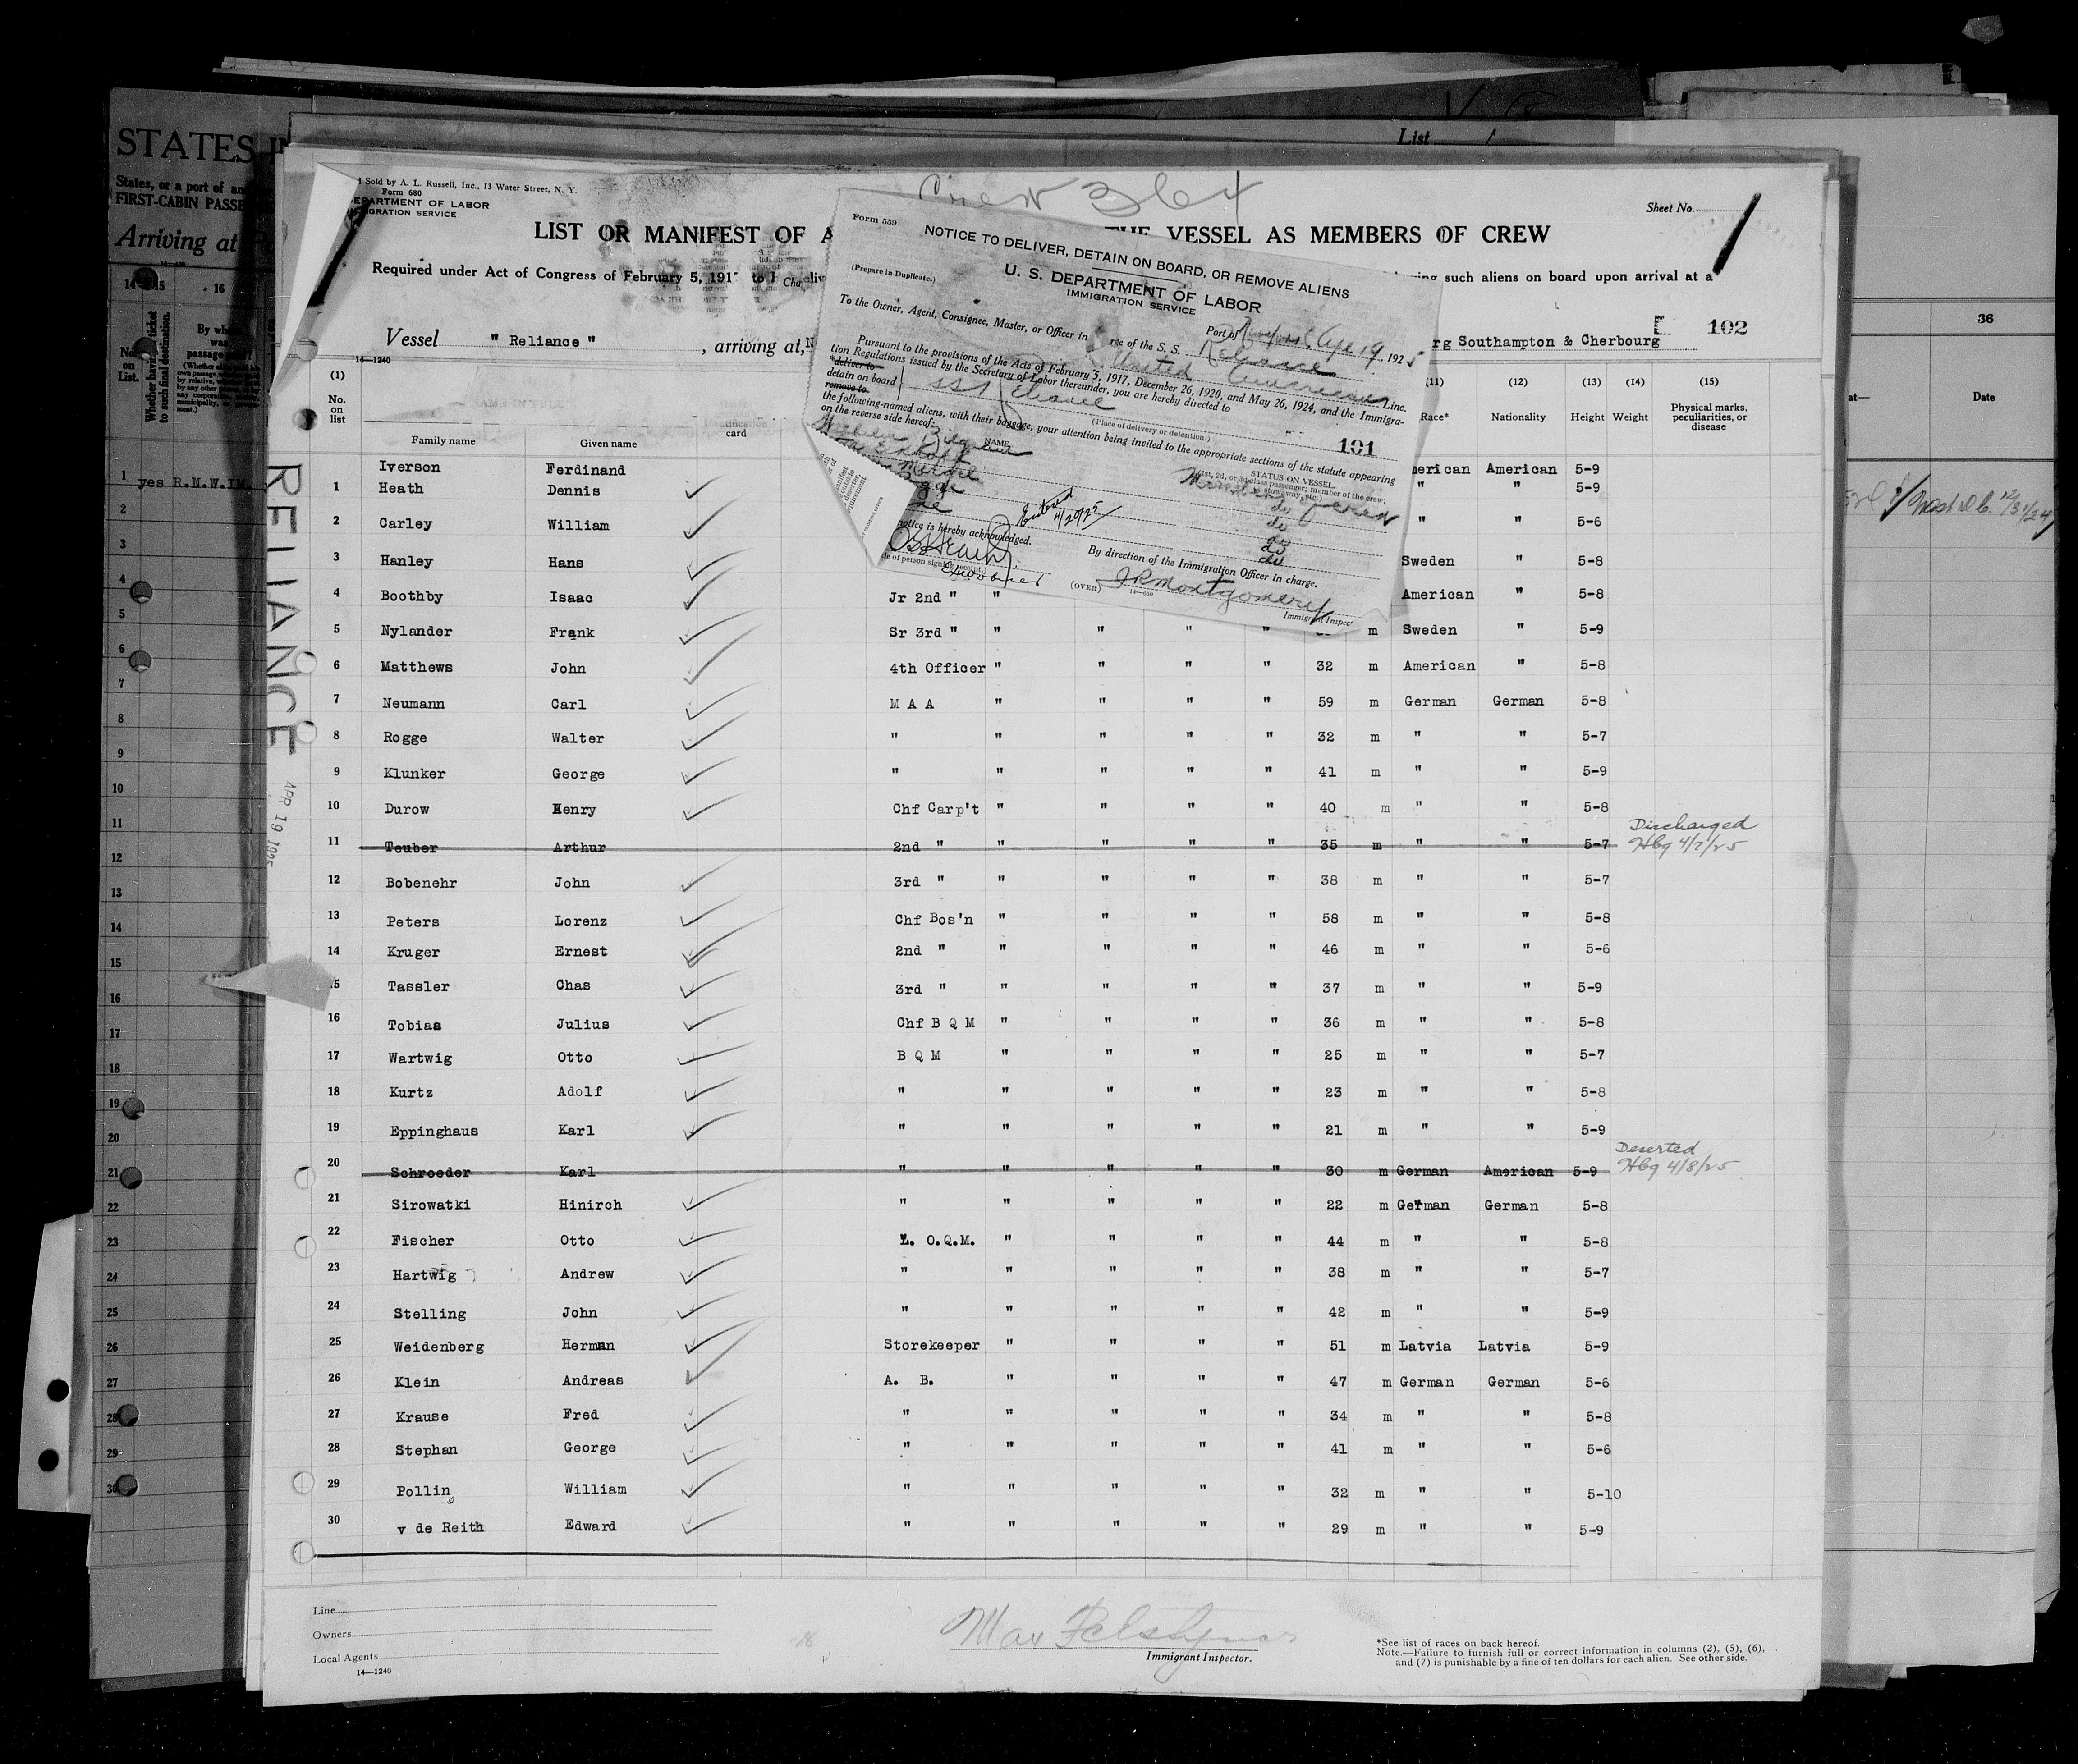 STATES IN
States, or a port of an
FIRST-CABIN PASSE
Arriving at Po
14 15 16
No. on List.
Whether having ticket to such final destination.
By whom was passage paid?
1 yes R.N.W.IM.
2
3
4
5
6
7
8
9
10
11
12
13
14
15
16
17
18
19
20
21
22
23
24
25
26
27
28
29
30
List
36
at—
Date
Sold by A. L. Russell, Inc., 13 Water Street, N. Y.
Form 680
DEPARTMENT OF LABOR
IMMIGRATION SERVICE
Crew 364
Sheet No.
LIST OR MANIFEST OF A THE VESSEL AS MEMBERS OF CREW
Required under Act of Congress of February 5, 1917 to such aliens on board upon arrival at a
Vessel " Reliance " , arriving at, rg Southampton & Cherbourg
102
14—1240
(1) (11) (12) (13) (14) (15)
No. on list
Family name Given name card Race* Nationality Height Weight Physical marks, peculiarities, or disease
RELIANCE
APR 19 1925
Iverson Ferdinand merican American 5-9
1 Heath Dennis " " 5-9
2 Carley William " " 5-6
3 Hanley Hans Sweden " 5-8
4 Boothby Isaac Jr 2nd " " American " 5-8
5 Nylander Frank Sr 3rd " " " " " m Sweden " 5-9
6 Matthews John 4th Officer " " " " 32 m American " 5-8
7 Neumann Carl M A A " " " " 59 m German German 5-8
8 Rogge Walter " " " " " 32 m " " 5-7
9 Klunker George " " " " " 41 m " " 5-9
10 Durow Henry Chf Carp't " " " " 40 m " " 5-8
11 Teuber Arthur 2nd " " " " " 35 m " " 5-7 Discharged Hbg 4/7/25
12 Bobenehr John 3rd " " " " " 38 m " " 5-7
13 Peters Lorenz Chf Bos'n " " " " 58 m " " 5-8
14 Kruger Ernest 2nd " " " " " 46 m " " 5-6
15 Tassler Chas 3rd " " " " " 37 m " " 5-9
16 Tobias Julius Chf B Q M " " " " 36 m " " 5-8
17 Wartwig Otto B Q M " " " " 25 m " " 5-7
18 Kurtz Adolf " " " " " 23 m " " 5-8
19 Eppinghaus Karl " " " " " 21 m " " 5-9
20 Schroeder Karl " " " " " 30 m German American 5-9 Deserted Hbg 4/8/25
21 Sirowatki Hinirch " " " " " 22 m German German 5-8
22 Fischer Otto L. O.Q.M. " " " " 44 m " " 5-8
23 Hartwig Andrew " " " " " 38 m " " 5-7
24 Stelling John " " " " " 42 m " " 5-9
25 Weidenberg Herman Storekeeper " " " " 51 m Latvia Latvia 5-9
26 Klein Andreas A. B. " " " " 47 m German German 5-6
27 Krause Fred " " " " " 34 m " " 5-8
28 Stephan George " " " " " 41 m " " 5-6
29 Pollin William " " " " " 32 m " " 5-10
30 v de Reith Edward " " " " " 29 m " " 5-9
Line
Owners
Local Agents
14—1240
Max
Immigrant Inspector.
*See list of races on back hereof.
Note.—Failure to furnish full or correct information in columns (2), (5), (6),
and (7) is punishable by a fine of ten dollars for each alien. See other side.
Form 559
NOTICE TO DELIVER, DETAIN ON BOARD, OR REMOVE ALIENS
(Prepare in Duplicate.)
U. S. DEPARTMENT OF LABOR
IMMIGRATION SERVICE
Port of 19, 1925
To the Owner, Agent, Consignee, Master, or Officer in Charge of the S. S. Reliance
United American Line.
Pursuant to the provisions of the Acts of February 5, 1917, December 26, 1920, and May 26, 1924, and the Immigra-
tion Regulations issued by the Secretary of Labor thereunder, you are hereby directed to
*deliver to
detain on board SS Reliance
remove to
(Place of delivery or detention.)
the following-named aliens, with their baggage, your attention being invited to the appropriate sections of the statute appearing
on the reverse side hereof:
191
NAME.
STATUS ON VESSEL
(1st, 2d, or 3d class passenger; member of the crew; stowaway, etc.)
Member of crew
do
do
do
do
4/29/25
notice is hereby acknowledged.
By direction of the Immigration Officer in charge.
(OVER)
J R Montgomery
Immigrant Inspec